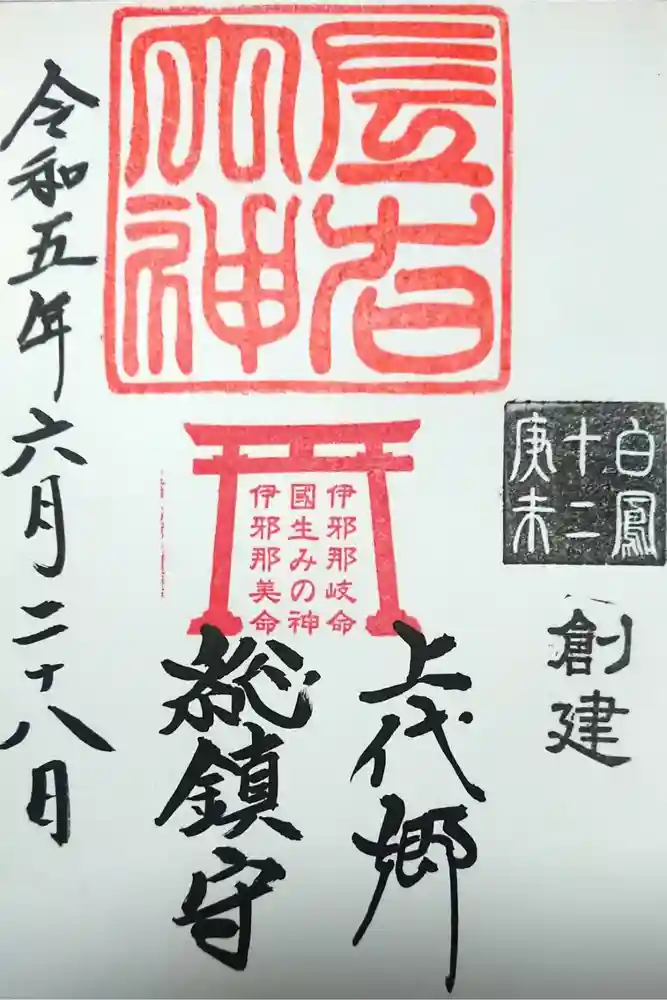 大神
白鳳
十二
庚未
創建
伊邪那岐命
國生みの神
伊邪那美命
上代郷
総鎮守
令和五年六月二十八日